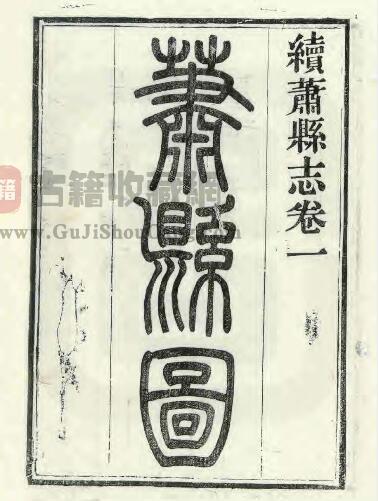 續蕭縣志卷一
蕭縣圖
古籍收藏網
www.GuJiShouCang.com
籍